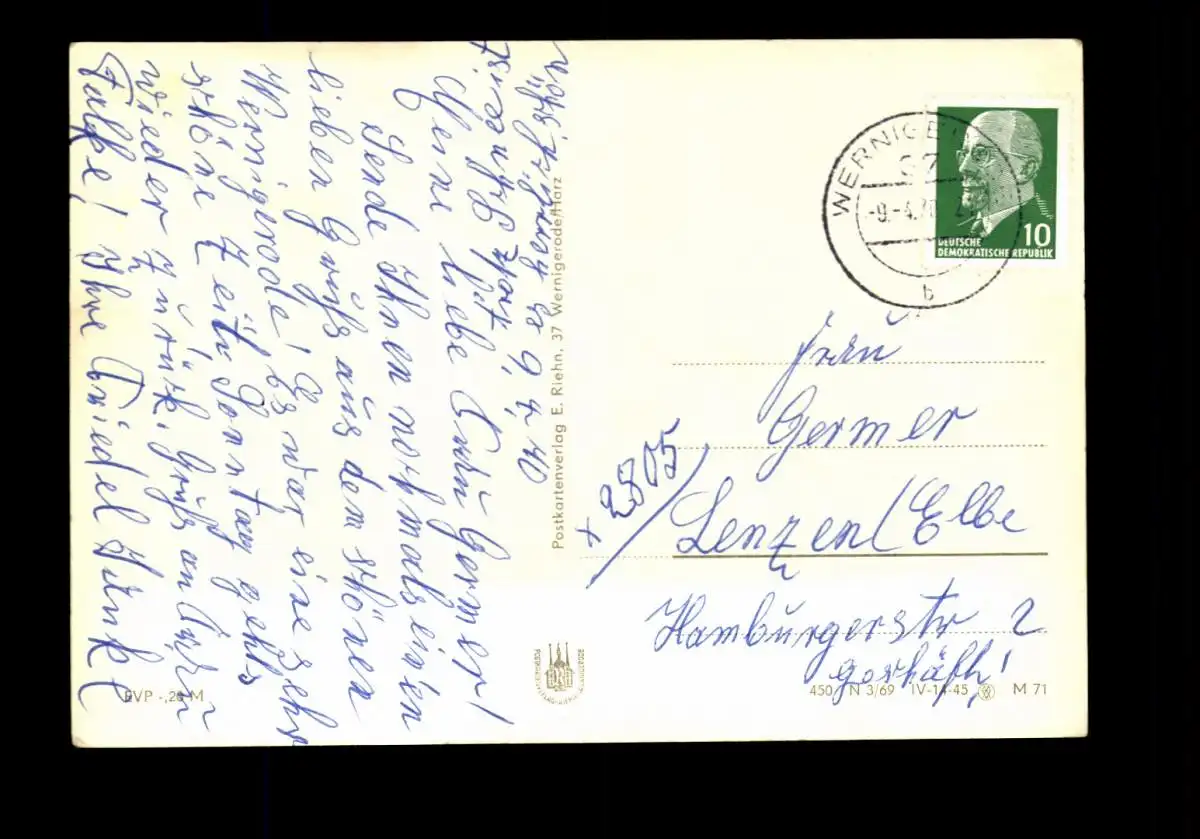 9.4.70
Meine liebe Frau Germer!
Sende Ihnen nochmals einen
lieben Gruß aus dem schönen
Wernigerode! Es war eine sehr
schöne Zeit. Sonntag gehts
wieder zurück. Gruß an
Ihre Friedel
Postkartenverlag E. Riehn, 37 Wernigerode/Harz
WERNIGE
37
-9.-4.70
b
10
DEUTSCHE
DEMOKRATISCHE REPUBLIK
Frau
Germer
x 2805
Lenzen (Elbe
Hamburgerstr 2
EVP -,20 M
450 N 3/69 IV-14-45 M 71